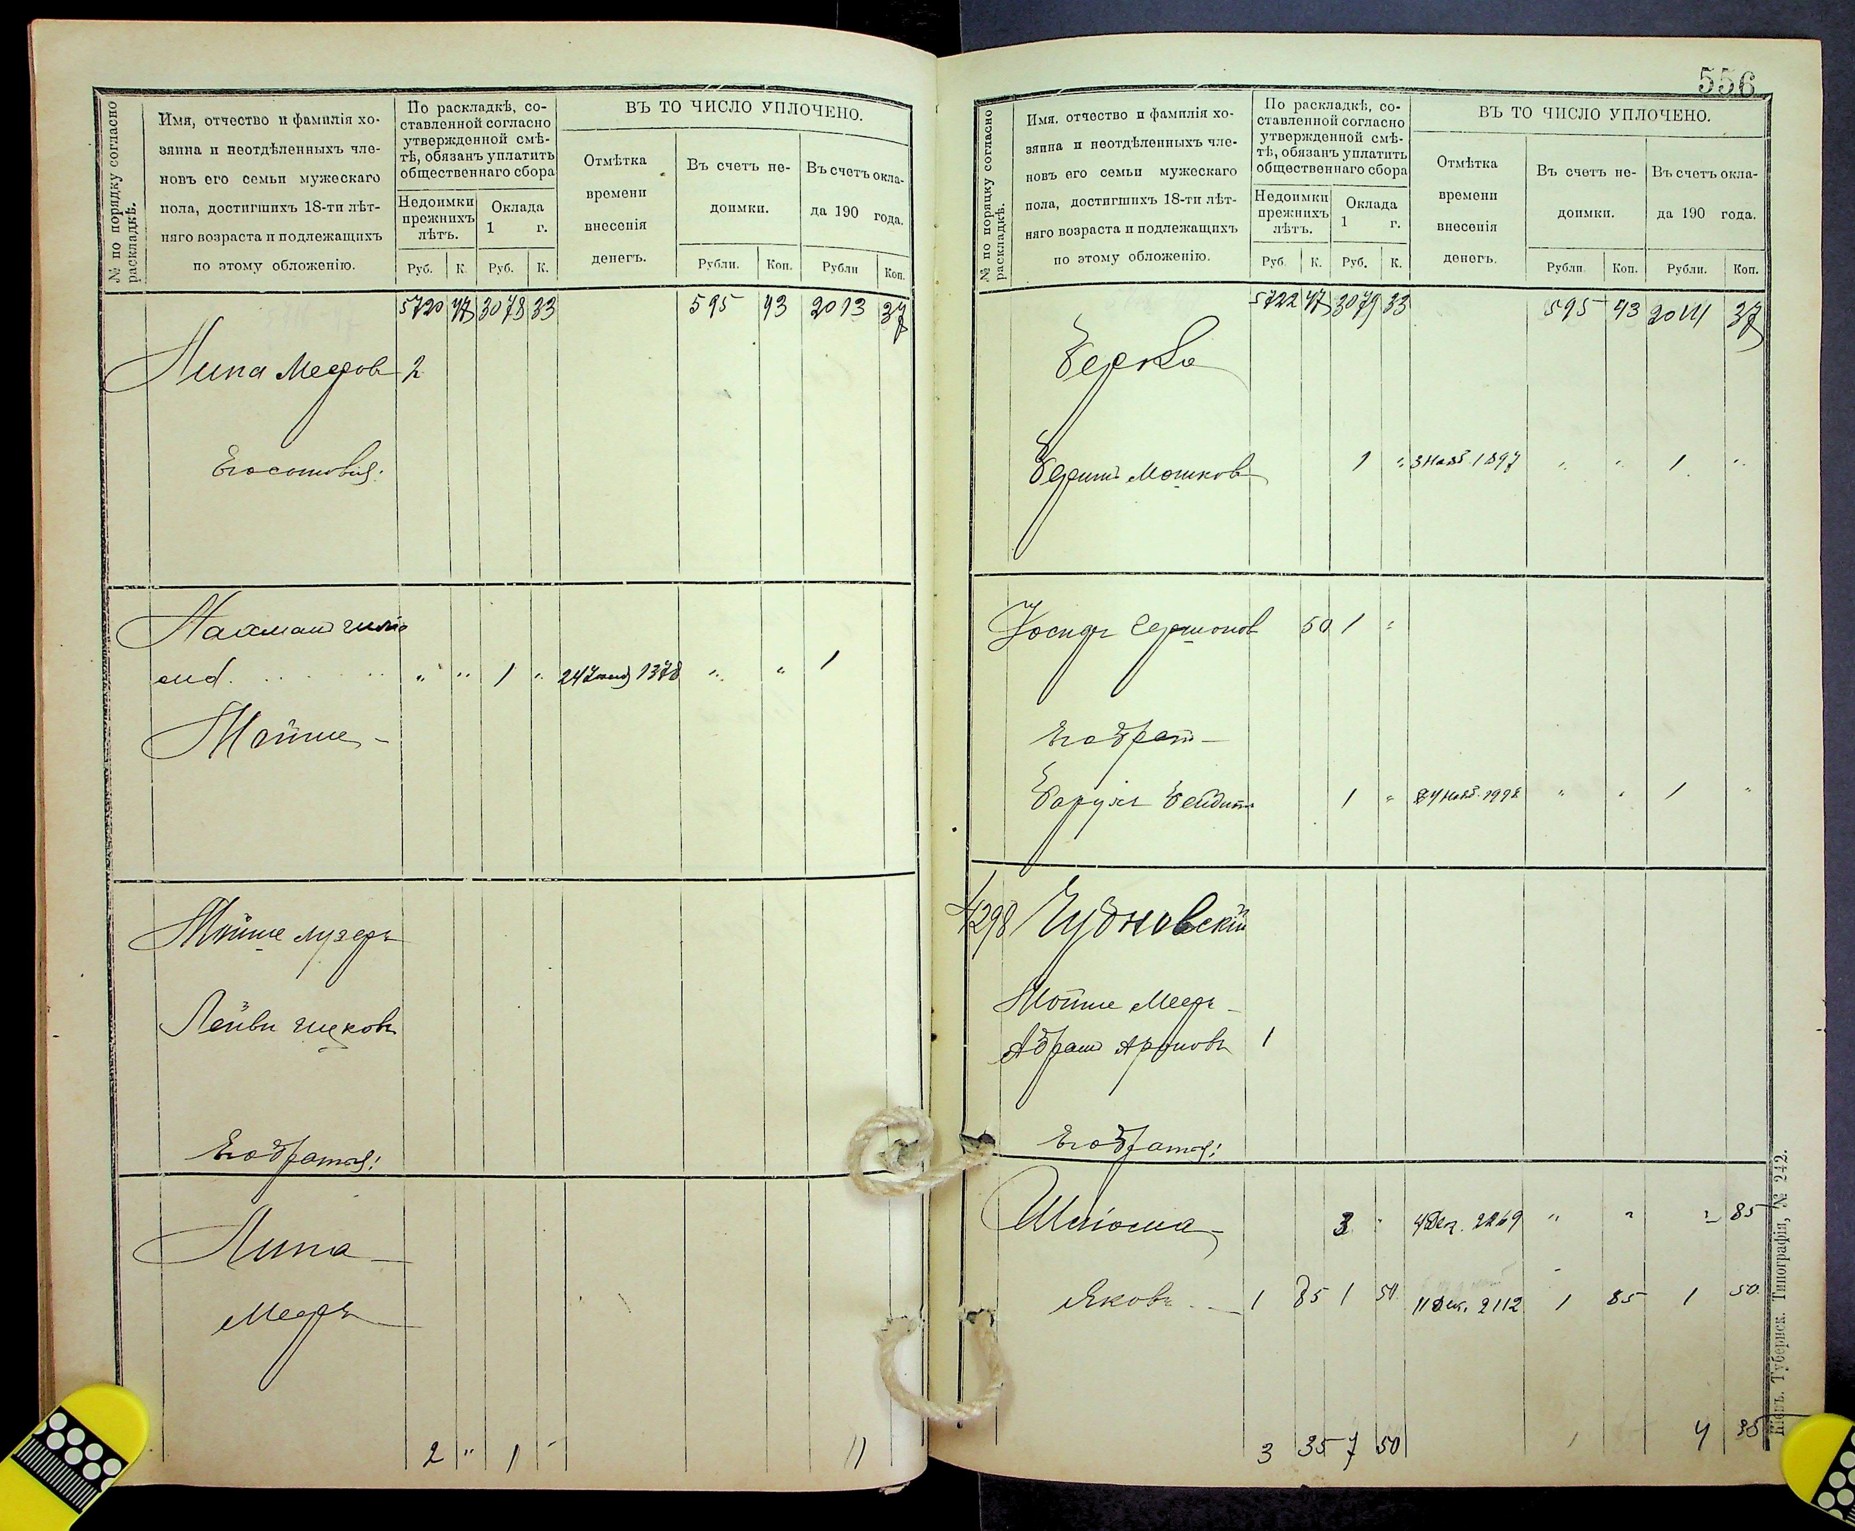 № по порядку согласно раскладкѣ.
Имя, отчество и фамилія хо-
зяина и неотдѣленныхъ чле-
новъ его семьи мужескаго
пола, достигшихъ 18-ти лѣт-
няго возраста и подлежащихъ
по этому обложенію.
По раскладкѣ, со-
ставленной согласно
утвержденной смѣ-
тѣ, обязанъ уплатить
общественнаго сбора
Недоимки
прежнихъ
лѣтъ.
Оклада
1 г.
Руб. К. Руб. К.
ВЪ ТО ЧИСЛО УПЛОЧЕНО.
Отмѣтка
времени
внесенія
денегъ.
Въ счетъ не-
доимки.
Въ счетъ окла-
да 190 года.
Рубли. Коп. Рубли Коп.
5720 47 3078 33 595 93 2013 37
Липа Мееров 2
Его сыновья:
Нахман
" " 1 " 24 1378 " " 1
Мойше -
Мойше Лузеръ
Лейви
Его братья:
Липа
Мееръ
2 " 1 - 11
556
№ по порядку согласно раскладкѣ.
Имя, отчество и фамилія хо-
зяина и неотдѣленныхъ чле-
новъ его семьи мужескаго
пола, достигшихъ 18-ти лѣт-
няго возраста и подлежащихъ
по этому обложенію.
По раскладкѣ, со-
ставленной согласно
утвержденной смѣ-
тѣ, обязанъ уплатить
общественнаго сбора
Недоимки
прежнихъ
лѣтъ.
Оклада
1 г.
Руб. К. Руб. К.
ВЪ ТО ЧИСЛО УПЛОЧЕНО.
Отмѣтка
времени
внесенія
денегъ.
Въ счетъ не-
доимки.
Въ счетъ окла-
да 190 года.
Рубли. Коп. Рубли. Коп.
5722 47 3079 33 595 93 2014 37
Берко
Мошков 1 " 3 Нояб 1897 " " 1 "
Иосифъ Гершонов 50 1 "
Его брат -
Барухъ 1 " " " 1 "
4298 Чудновскій
Мойше Мееръ -
Абрам Ароновъ 1
Его братья:
Шлиома - 3 " 4 Дек. 2269 " " 2 85
Яковъ - 1 85 1 50 11 Дек. 2112 1 85 1 50
3 35 7 50 1 4 35
Кіевъ. Губернск. Типографія, № 242.